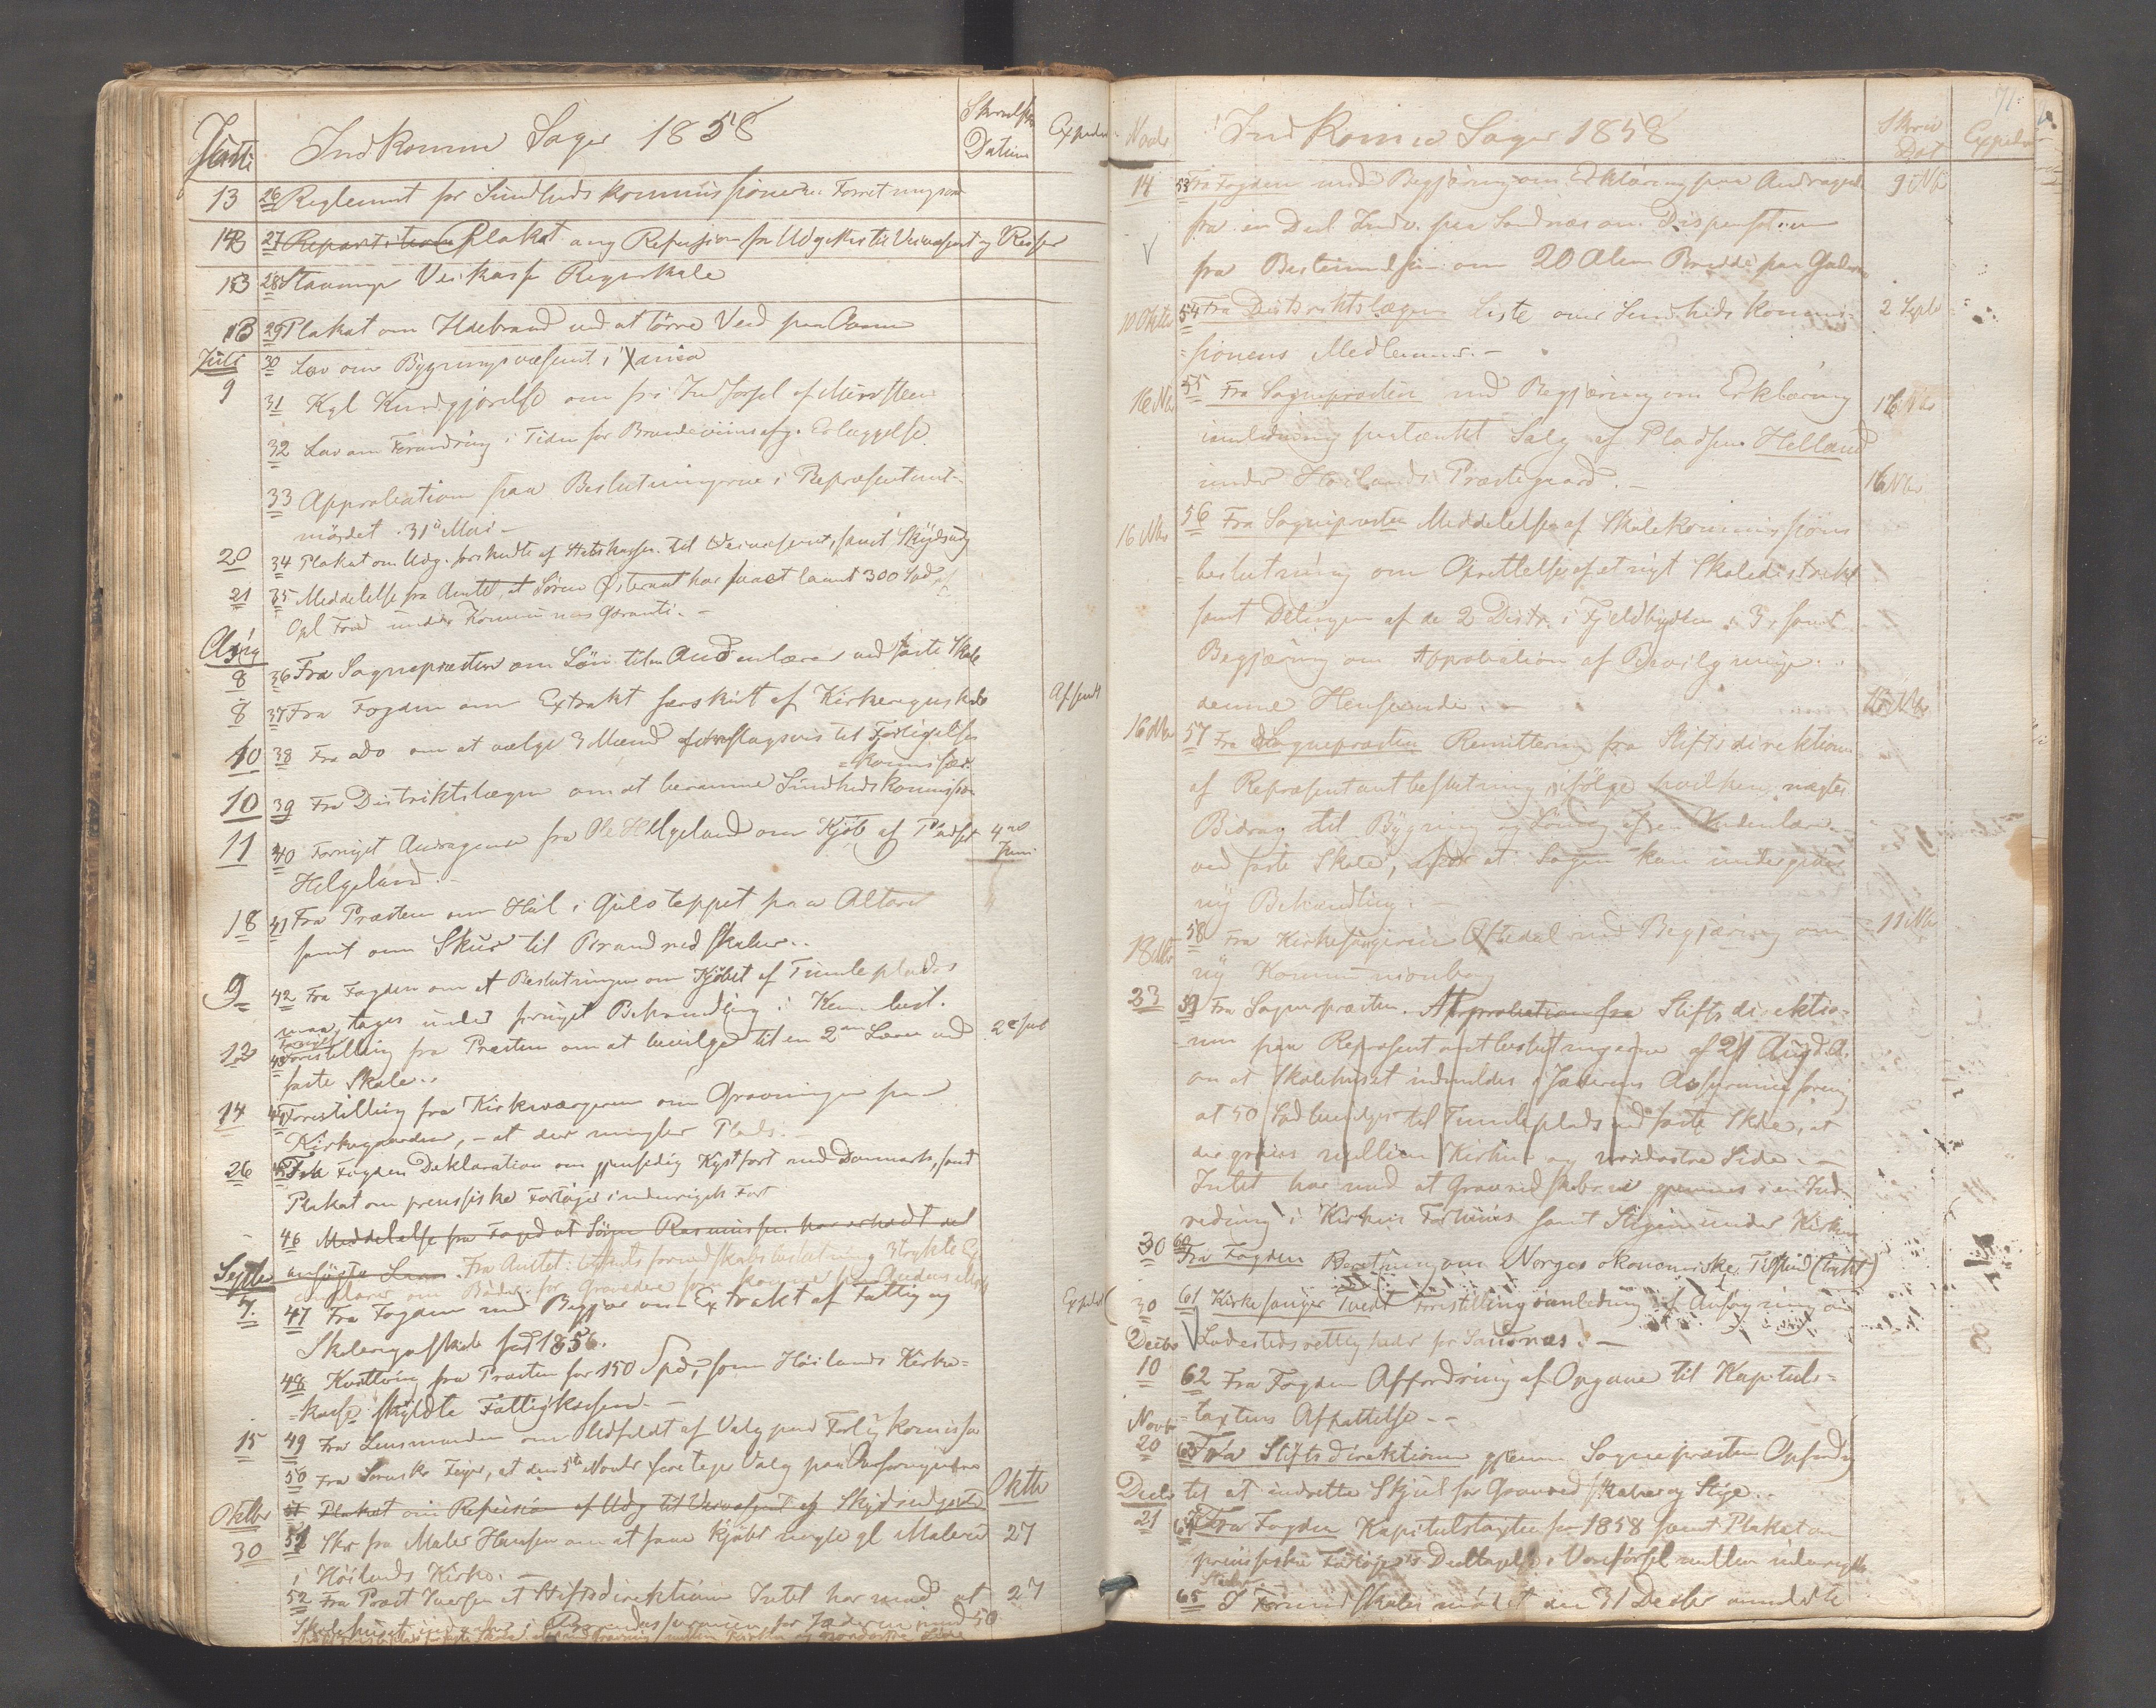 Indkomne Sager 1858
Datum
13 26 Reglement for Sundhedskommissionernes Forretningsorden
13 27 Repartition Plakat ang Refusion for Udgifter til Veivæsenet og
13 28 Stavanger Veikasse Regnskab
13 29 Plakat om Ildebrand ved at törre Ved paa Ovnen
Juli
9 30 Lov om Bygningsvæsenet i Xania
31 Kgl Kundgjörelse om fri Indförsel af
32 Lov om Forandring i Tiden for Brændeviinsafg. Erlæggelse
33 Approbation paa Beslutningerne i Repræsentant-
mödet 31te Mai -
20 34 Plakat om Udg. forskudte af Statskassen til Veivæsenet, samt Skydsudg
21 35 Meddelelse fra Amtet, at Sören Østeraat har faaet laant 300 Spd af
Opl Fond under Kommunens Garanti. -
Aug
8 36 Fra Sognepræsten om Lön til en Andenlærer ved faste Skole
8 37 Fra Fogden om Extrakt særskilt af Kirkeregnskab Afsendt
10 38 Fra do om at vælge 3 Mænd forslagsvis til Forligelses
=kommissær.
10 39 Fra Distriktslægen om at beramme Sundhedskommission
11 40 Fornyet Andragende fra Ole Helgeland om Kjöb af Pladsen 4de Juni
Helgeland. -
18 41 Fra Præsten om Hul i Gulvteppet paa Alteret
samt om Skur til Brandredskaber..
9 42 Fra Fogden om at Beslutningen om Kjöbet af Tomteplads
maa tages under fornyet Behandling i Kom. best.
12 43 Forestilling fra Præsten om at bevilge til en 2den Lærer ved
faste Skole..
14 44 Forestilling fra Kirkeværgerne om Gravningen paa
Kirkegaarden, - at der mangler Plads. -
26 45 Fra Fogden Deklaration om gjensidig Kystfart med Danmark, samt
Plakat om preussiske Fartöier i indenrigsk Fart
46 Meddelelse fra Foged at Sören Rasmussen har erholdt det
ansögte Laan. Fra Amtet: Amtsformandskabsbeslutning 3 trykte Ex
Septbr
7 47 Fra Fogden med Begjær om Extrakt af Fattig og Exped
Skoleregnskab for 1856.
48 Kvittering fra Præsten for 150 Spd, som Höilands Kirke=
=kasse skyldte Fattigkassen. -
15 49 Fra Lensmanden om Udfaldet af Valg paa Forligkomissær
50 Fra Sorensk. Feyer, at den 5te Novbr foretages Valg paa
Oktbr 51 Plakat om Refusion af Udg til Veivæsenet og Skydsudgifter Oktbr
30 51 Skr fra Maler Hansen om at faae kjöbt nogle gl Malerier 27
i Höilands Kirke. -
52 Fra Prost Iversen at Stiftsdirektionen Intet har mod at 27
Novbr Indkomne Sager 1858
14 53 Fra Fogden med Begjæring om Erklæring paa Andragende 9 Nbr
fra en Deel Indv. paa Sandnæs om Dispensation
fra Bestemmelsen om 20 Alen Bredde paa Gaderne
10 Oktbr 54 Fra Distriktslægen Liste over Sundhedskommis- 2 Septbr
=sionens Medlemmer. -
16 Nbr 55 Fra Sognepræsten med Begjæring om Erklæring 16 Nbr
i anledning paatænkt Salg af Pladsen Helland
under Höilands Præstegaard. -
16 Nbr 56 Fra Sognepræsten Meddelelse af Skolekommissions 16 Nbr
=beslutning om Oprettelse af et nyt Skoledistrikt
samt Delingen af de 2 Distr. i Fjeldbygden i 3, samt
Begjæring om Approbation af Bevilgninger i
denne Henseende. -
16 Nbr 57 Fra Sognepræsten Remittering fra Stiftsdirektionen
af Repræsentantbeslutning ifölge hvilken nægtes
Bidrag til Bygning og Lönning af en Andenlærer
ved faste Skole, for at Sagen kan undergives
ny Behandling. -
18 Nbr 58 Fra Kirkesangeren Aftedal med Begjæring om 11 Nbr
ny Kommunionbog
23 59 Fra Sognepræsten. Approbation fra Stiftsdirektio-
nen paa Repræsentantbeslutningerne af 21 Aug d.A.
om at Skolehuset indmeldes i Jæderens Assuranceforening
at 50 Spd bevilges til Tomteplads ved faste Skole, at
der graves mellem Kirken og nordöstre Side. -
Intet har mod at Gravredskaberne gjemmes i en Ind-
redning i Kirkens Forhuus samt Stigen under Kirken
30 60 Fra Fogden Beretning om Norges økonomiske Tilstand (trykt)
30 61 Kirkesanger Tvedt Forestilling i anledning af Ansögning om
Decbr Ladestedsrettigheder for Sandnæs. -
10 62 Fra Fogden Affordring af Opgave til Kapitels-
Novbr =taxtens Affattelse. -
20 63 Fra Stiftsdirektionen gjennem Sognepræsten Opfordring
Decbr til at indrette Skjul for Gravredskaber og Stige..
21 64 Fra Fogden Kapitelstaxten for 1858 samt Plakat om
preussiske Fartöiers Deeltagelse i Vareförsel mellem indenrigske
Steder
65 I Formandskabsmödet den 31 Decbr anmeldte